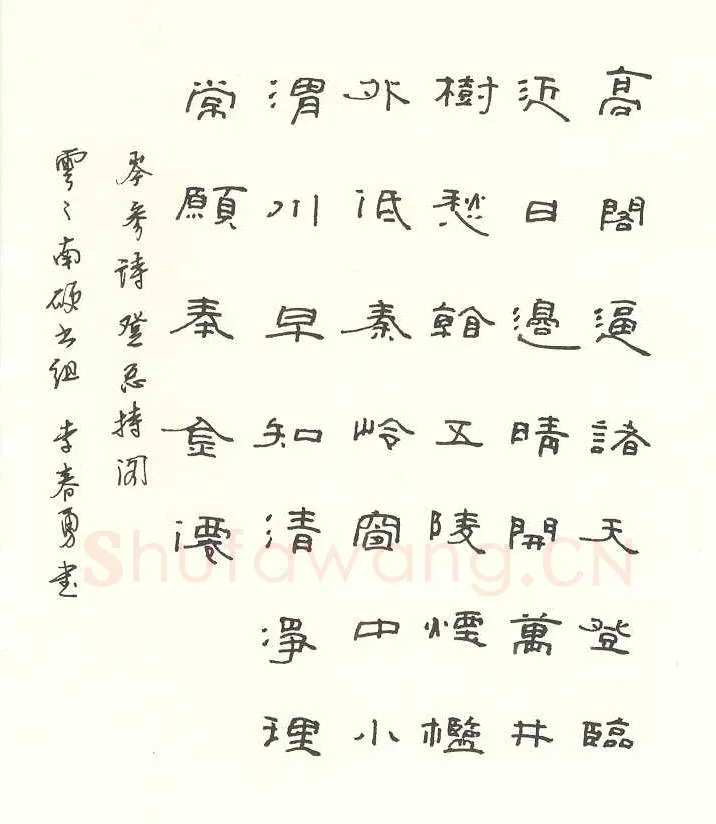 高閣逼諸天登臨
近日邊晴開萬井
樹愁看五陵煙檻
外低秦岭窗中小
渭川早知清淨理
常願奉金僊
岑參詩登总持阁
雲之南硕书组 李春勇书